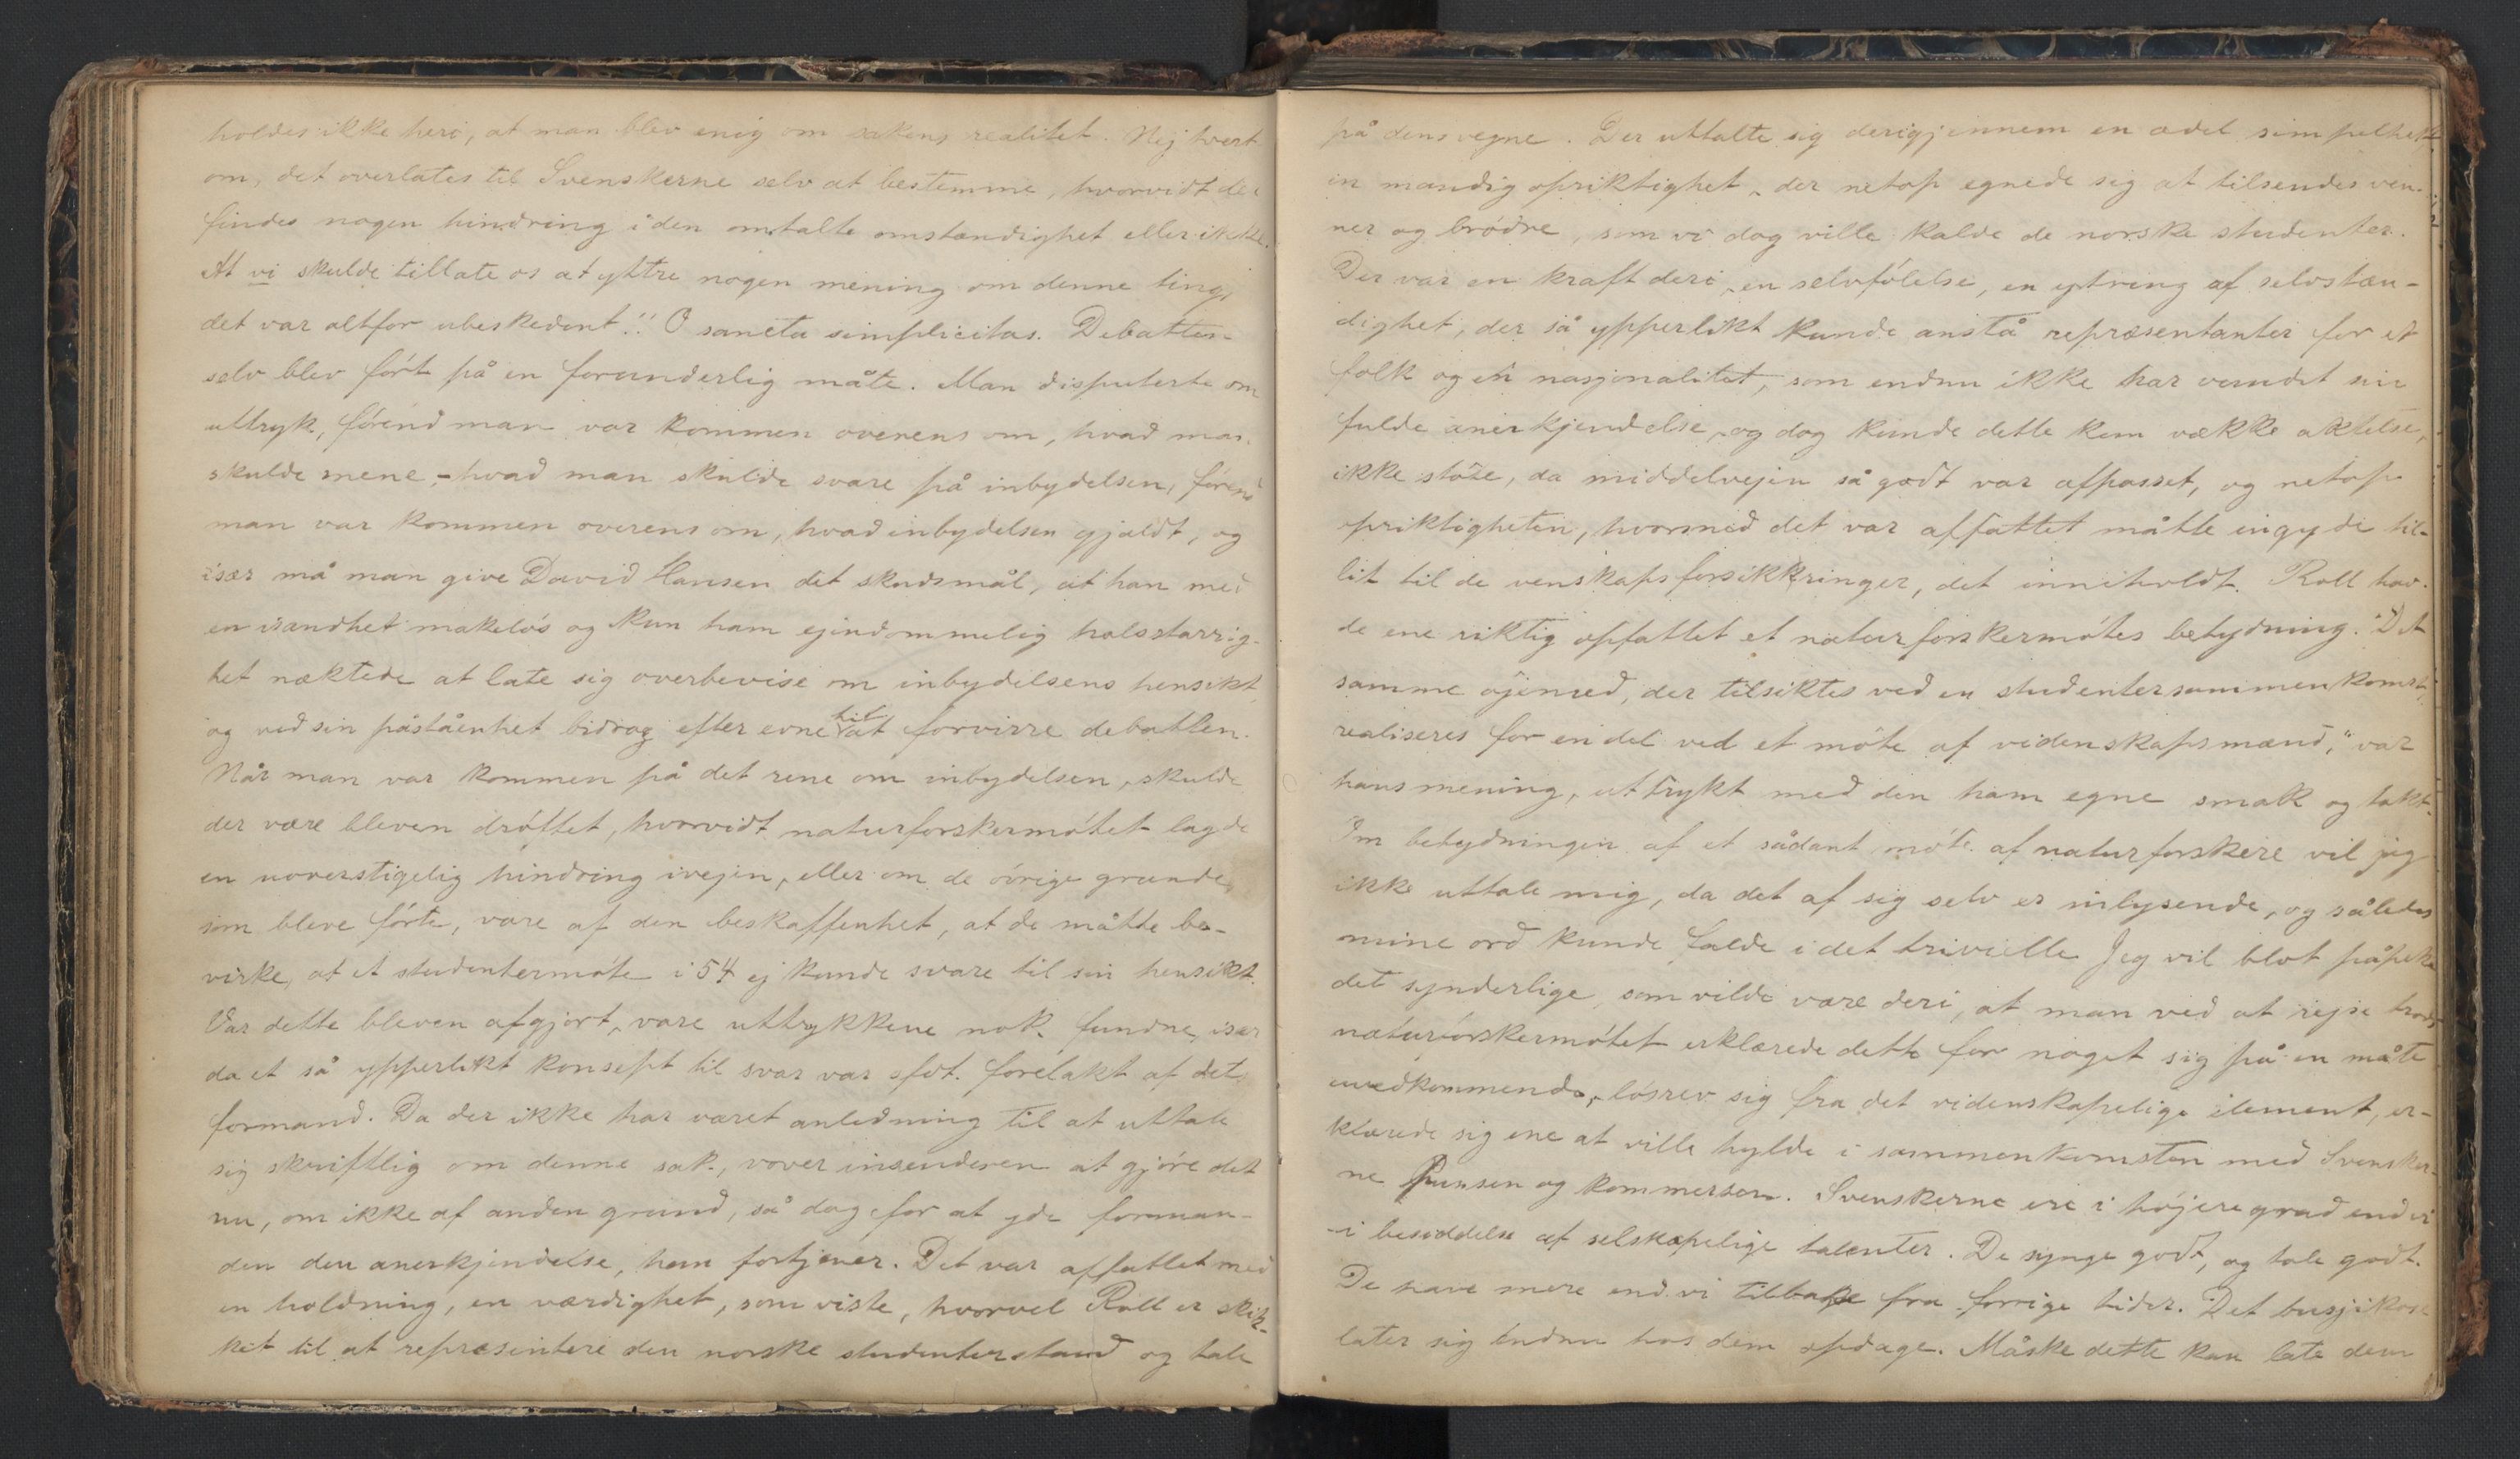 holdes ikke heri, at man blev enig om sakens realitet. Nej tvert
om, det overlates til Svenskerne selv at bestemme, hvorvidt der
findes nogen hindring i den omtalte omstændighet eller ikke.
At vi skulde tillate os at yttre nogen mening om denne ting,
det var altfor ubeskedent!! O sancta simplicitas. Debatten
selv blev ført på en forunderlig måte. Man disputerte om
uttryk, førend man var kommen overens om, hvad man
skulde mene, - hvad man skulde svare på inbydelsen, førend
man var kommen overens om, hvad inbydelsen gjaldt, og
især må man give David Hansen det skudsmål, at han med
en isandhet makeløs og kun ham ejendommelig halsstarrig-
het næktede at late sig overbevise om inbydelsens hensikt
og ved sin påståenhet bidrog efter evne til at forvirre debatten.
Når man var kommen på det rene om inbydelsen, skulde
der være bleven drøftet, hvorvidt naturforskermøtet lagde
en uoverstigelig hindring ivejen, eller om de övrige grunde,
som bleve førte, vare af den beskaffenhet, at de måtte be-
virke, at et studentermøte i 54 ej kunde svare til sin hensikt.
Var dette bleven afgjort, vare uttrykkene nok fundne, især
da et så ypperlikt konsept til svar var sfdt. forelakt af dets
formand. Da der ikke har været anledning til at uttale
sig skriftlig om denne sak, vover insenderen at gjøre det
nu, om ikke af anden grund, så dog for at yde forman-
den den anerkjendelse, han fortjener. Det var affattet med
en holdning, en værdighet, som viste, hvorvel Roll er skik-
ket til at repræsentere den norske studenterstand og tale
på dens vegne. Der uttalte sig derigjennem en ædel simpelhet,
en mandig opriktighet, der netop egnede sig at tilsendes ven-
ner og brødre, som vi dog ville kalde de norske studenter.
Der var en kraft deri, en selvfølelse, en ytring af selvstæn-
dighet, der så ypperlikt kunde anstå repræsentanter for et
folk og en nasjonalitet, som endnu ikke har vundet sin
fulde anerkjendelse, og dog kunde dette kun vække aktelse,
ikke støte, da middelvejen så godt var afpasset, og netop
opriktigheten, hvormed det var affattet måtte ingyde til-
lit til de venskapsforsikkringer, det inneholdt. Roll hav-
de ene riktig opfattet et naturforskermøtes betydning. "Det
samme öjemed, der tilsiktes ved en studentersammenkomst,
realiseres for en del ved et möte af videnskapsmænd," var
hans mening, uttrykt med den ham egne smak og takt.
Om betydningen af et sådant møte af naturforskere vil jeg
ikke uttale mig, da det af sig selv er inlysende, og således
mine ord kunde falde i det trivielle. Jeg vil blot påpeke
det synderlige, som vilde være deri, at man ved at rejse trods
naturforskermøtet erklærede dette for noget sig på en måte
uvedkommende, løsrev sig fra det videnskapelige element, er-
klærede sig ene at ville hylde i sammenkomsten med Svensker-
ne Punsen og kommersen. Svenskerne ere i højere grad end vi
i besiddelse af selskapelige talenter. De synge godt, og tale godt.
De have mere end vi tilbake fra forrige tider. Det busjikose
later sig endnu hos dem opdage. Måske dette kan late dem